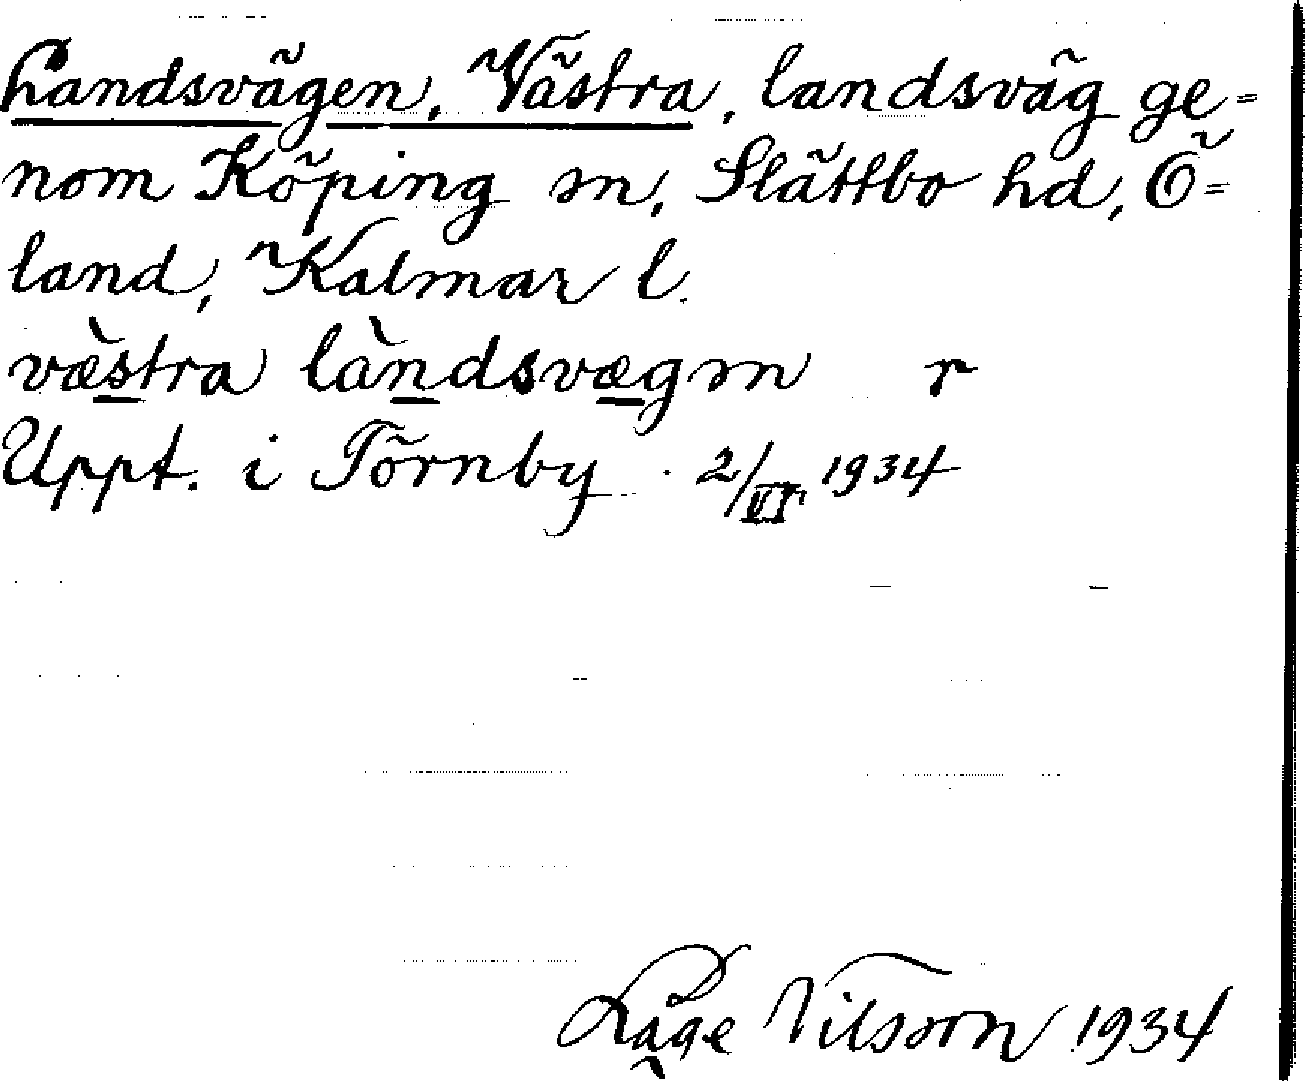 Landsvägen, Västra, landsväg ge-
nom Köping sn, Slättbo hd, Ö-
land, Kalmar l.
væ̀stra làndsvægən r
Uppt. i Törnby 2/VI 1934
Låge Nilsson 1934